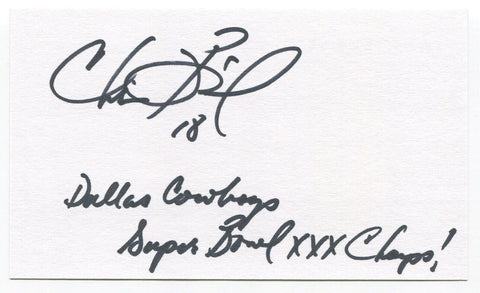 Chris
18
Dallas Cowboys
Super Bowl XXX Champs!